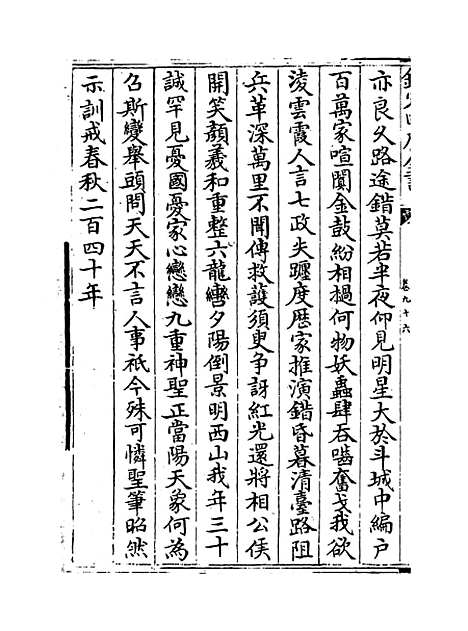 卷九十六
亦良久路途錯莫若半夜仰見明星大於斗城中編戶
百萬家喧闐金鼓紛相撾何物妖蟲肆吞嚙奮戈我欲
淩雲霞人言七政失躔度歴家推演錯昏暮清臺路阻
兵革深萬里不聞傳救護須臾争訝紅光還將相公侯
開笑顔羲和重整六龍轡夕陽倒景明西山我年三十
誠罕見憂國憂家心戀戀九重神聖正當陽天象何為
㕥斯變舉頭問天天不言人事祇今殊可憐聖筆昭然
示訓戒春秋二百四十年